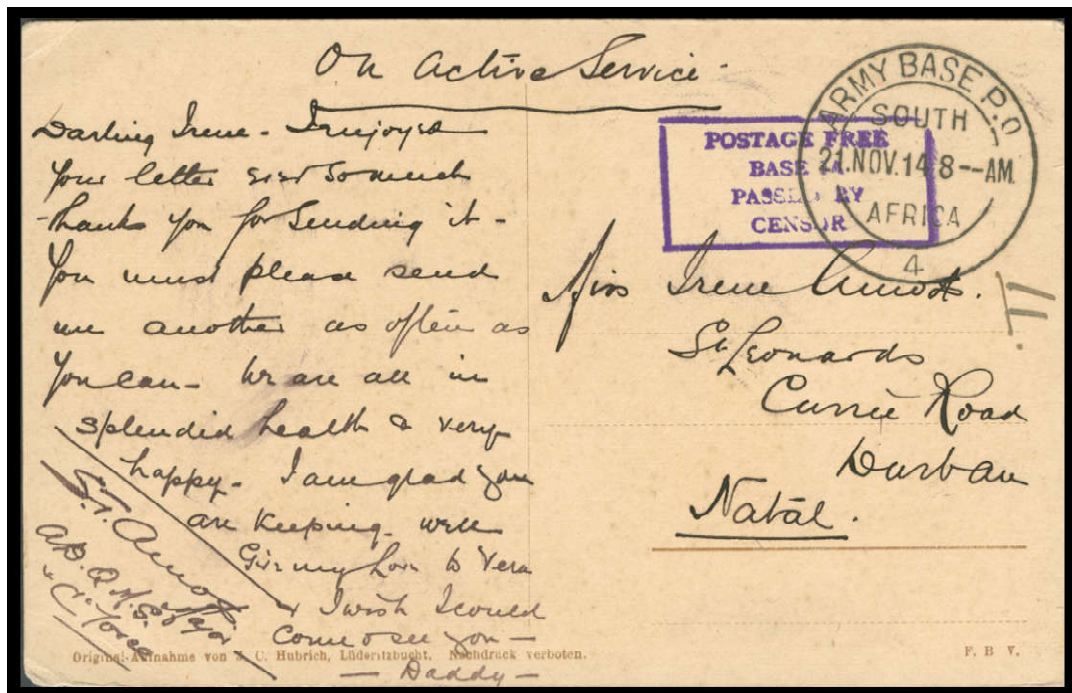 On Active Service -
Darling Irene - I enjoyed
your letter ever so much
thanks you for sending it -
You must please send
me another as often as
you can - We are all in
splendid health & very
happy - I am glad you
are keeping well
Give my love to Vera
I wish I could
come & see you -
- Daddy -
S.T. Amos
A.D.Q.M.S. Major
"C" Force
POSTAGE FREE
BASE
PASSED BY
CENSOR
ARMY BASE P.O
SOUTH
21.NOV.14 8--AM.
AFRICA
4
Miss Irene
St Leonards
Currie Road
Durban
Natal.
Original-Aufnahme von J. C. Hubrich, Lüderitzbucht. Nachdruck verboten.
F. B V.